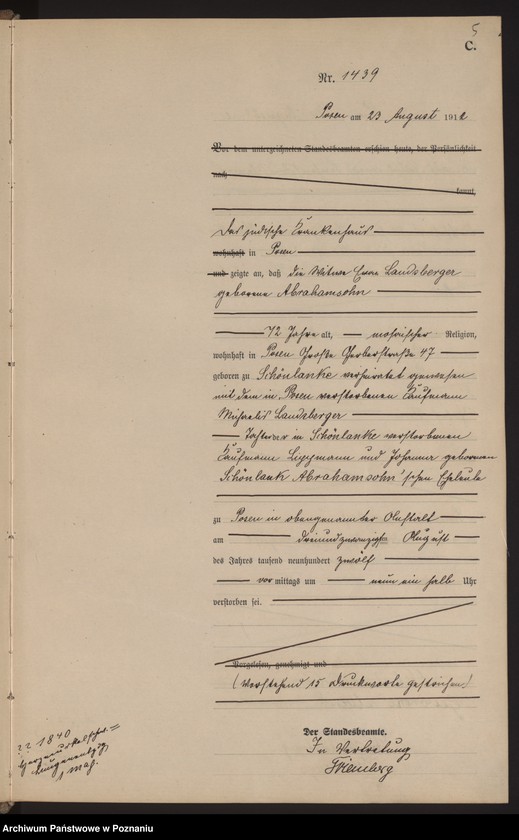 5
C.
Nr. 1439
Posen am 23 August 1912
Vor dem unterzeichneten Standesbeamten erschien heute, der Persönlichkeit
nach
kannt,
Das jüdische Krankenhaus
wohnhaft in Posen
und zeigte an, daß die Witwe Landsberger
geborene Abrahamsohn
72 Jahre alt, mosaischer Religion,
wohnhaft in Posen Große Gerberstraße 47
geboren zu Schönlanke verheiratet gewesen
mit dem in Posen verstorbenen Kaufmann
Michaelis Landsberger
Tochter der in Schönlanke verstorbenen
Kaufmann Lippmann und Johanna geborenen
Schönlank Abrahamsohn'schen Eheleute
zu Posen in obengenannter Anstalt
am dreiundzwanzigsten August
des Jahres tausend neunhundert zwölf
vormittags um neun ein halb Uhr
verstorben sei.
Vorgelesen, genehmigt und
(Vorstehend 15 Druckworte gestrichen)
Der Standesbeamte.
In Vertretung
1840
Archiwum Państwowe w Poznaniu